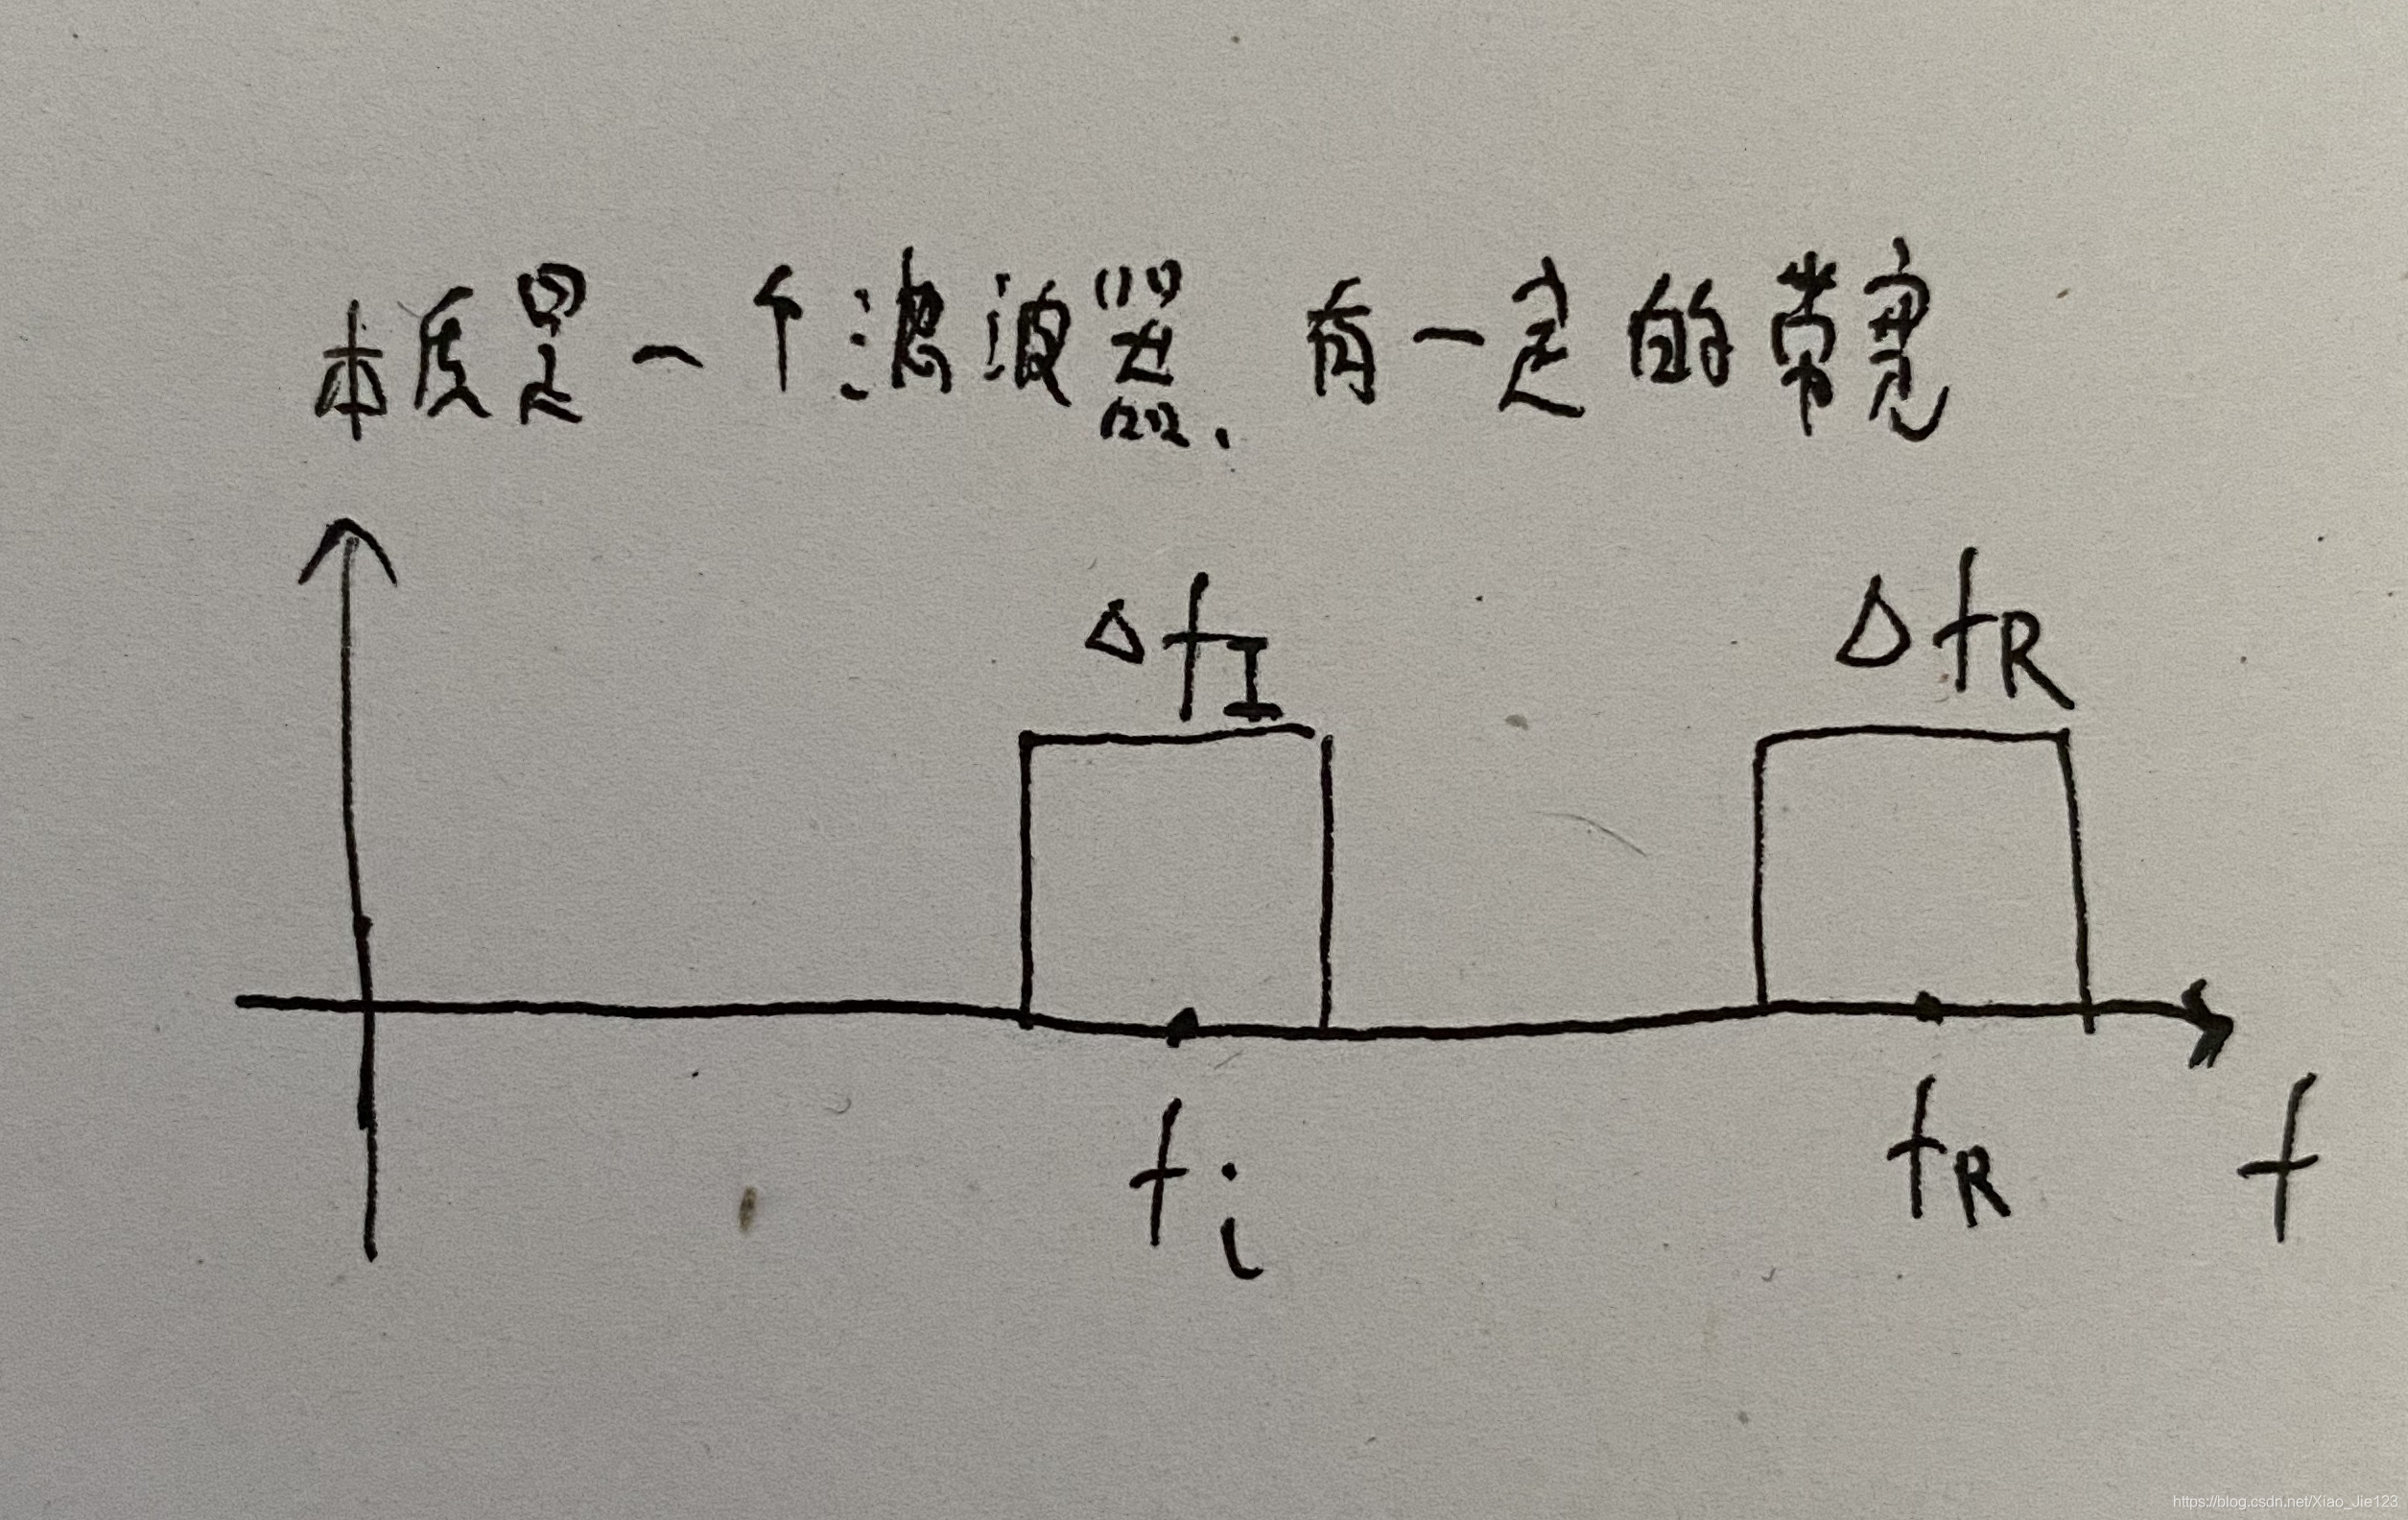 本质是一个滤波器、有一定的带宽
Δf_I Δf_R
f_i f_R f
https://blog.csdn.net/Xiao_Jie123